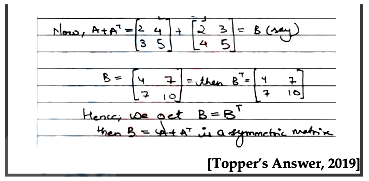 Now, A+Aᵀ = [2 4; 3 5] + [2 3; 4 5] = B (say)
B = [4 7; 7 10] = then Bᵀ = [4 7; 7 10]
Hence, we get B = Bᵀ
then B = A+Aᵀ is a symmetric matrix
[Topper's Answer, 2019]